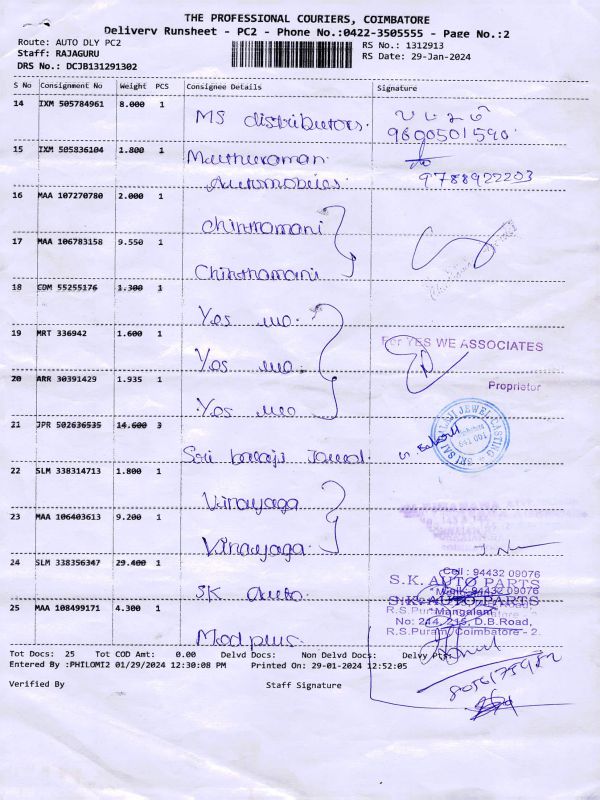 THE PROFESSIONAL COURIERS, COIMBATORE
Delivery Runsheet - PC2 - Phone No.:0422-3505555 - Page No.:2
Route: AUTO DLY PC2
Staff: RAJAGURU
DRS No.: DCJB131291302
RS No.: 1312913
RS Date: 29-Jan-2024
S No Consignment No Weight PCS Consignee Details Signature
14 IXM 505784961 8.000 1 MS distributors.
9600501590
15 IXM 505836104 1.800 1 Muthuraman
Automobiles.
9788922203
16 MAA 107270780 2.000 1 Chinthamani
17 MAA 106783158 9.550 1 Chinthamani
18 COM 55255176 1.300 1 Yes we.
19 MRT 336942 1.600 1 Yes we.
For YES WE ASSOCIATES
Proprietor
20 ARR 30391429 1.935 1 Yes we
21 JPR 502636535 14.600 3 Sri balaji Jewel.
SRI SAI BALAJI JEWEL CASTING
641 001
22 SLM 338314713 1.800 1 Vinayaga
23 MAA 106403613 9.200 1 Vinayaga.
24 SLM 338356347 29.400 1 SK Auto.
Cell : 94432 09076
S.K. AUTO PARTS
94432 09076
S.K. AUTO PARTS
25 MAA 108499171 4.300 1 Mod plus.
No: 244, 215, D.B.Road,
R.S.Puram, Coimbatore - 2.
Tot Docs: 25 Tot COD Amt: 0.00 Delvd Docs: Non Delvd Docs: Delvy Pts:
Entered By :PHILOMI2 01/29/2024 12:30:08 PM Printed On: 29-01-2024 12:52:05
8056175982
Verified By Staff Signature